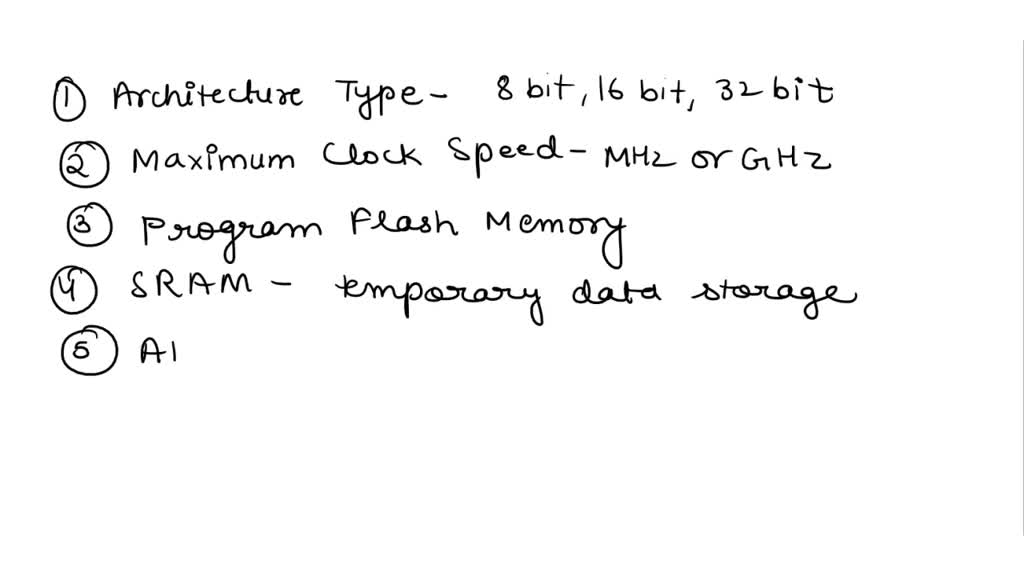 ① Architecture Type - 8 bit, 16 bit, 32 bit
② Maximum Clock Speed - MHz or GHz
③ Program Flash Memory
④ SRAM - temporary data storage
⑤ Al